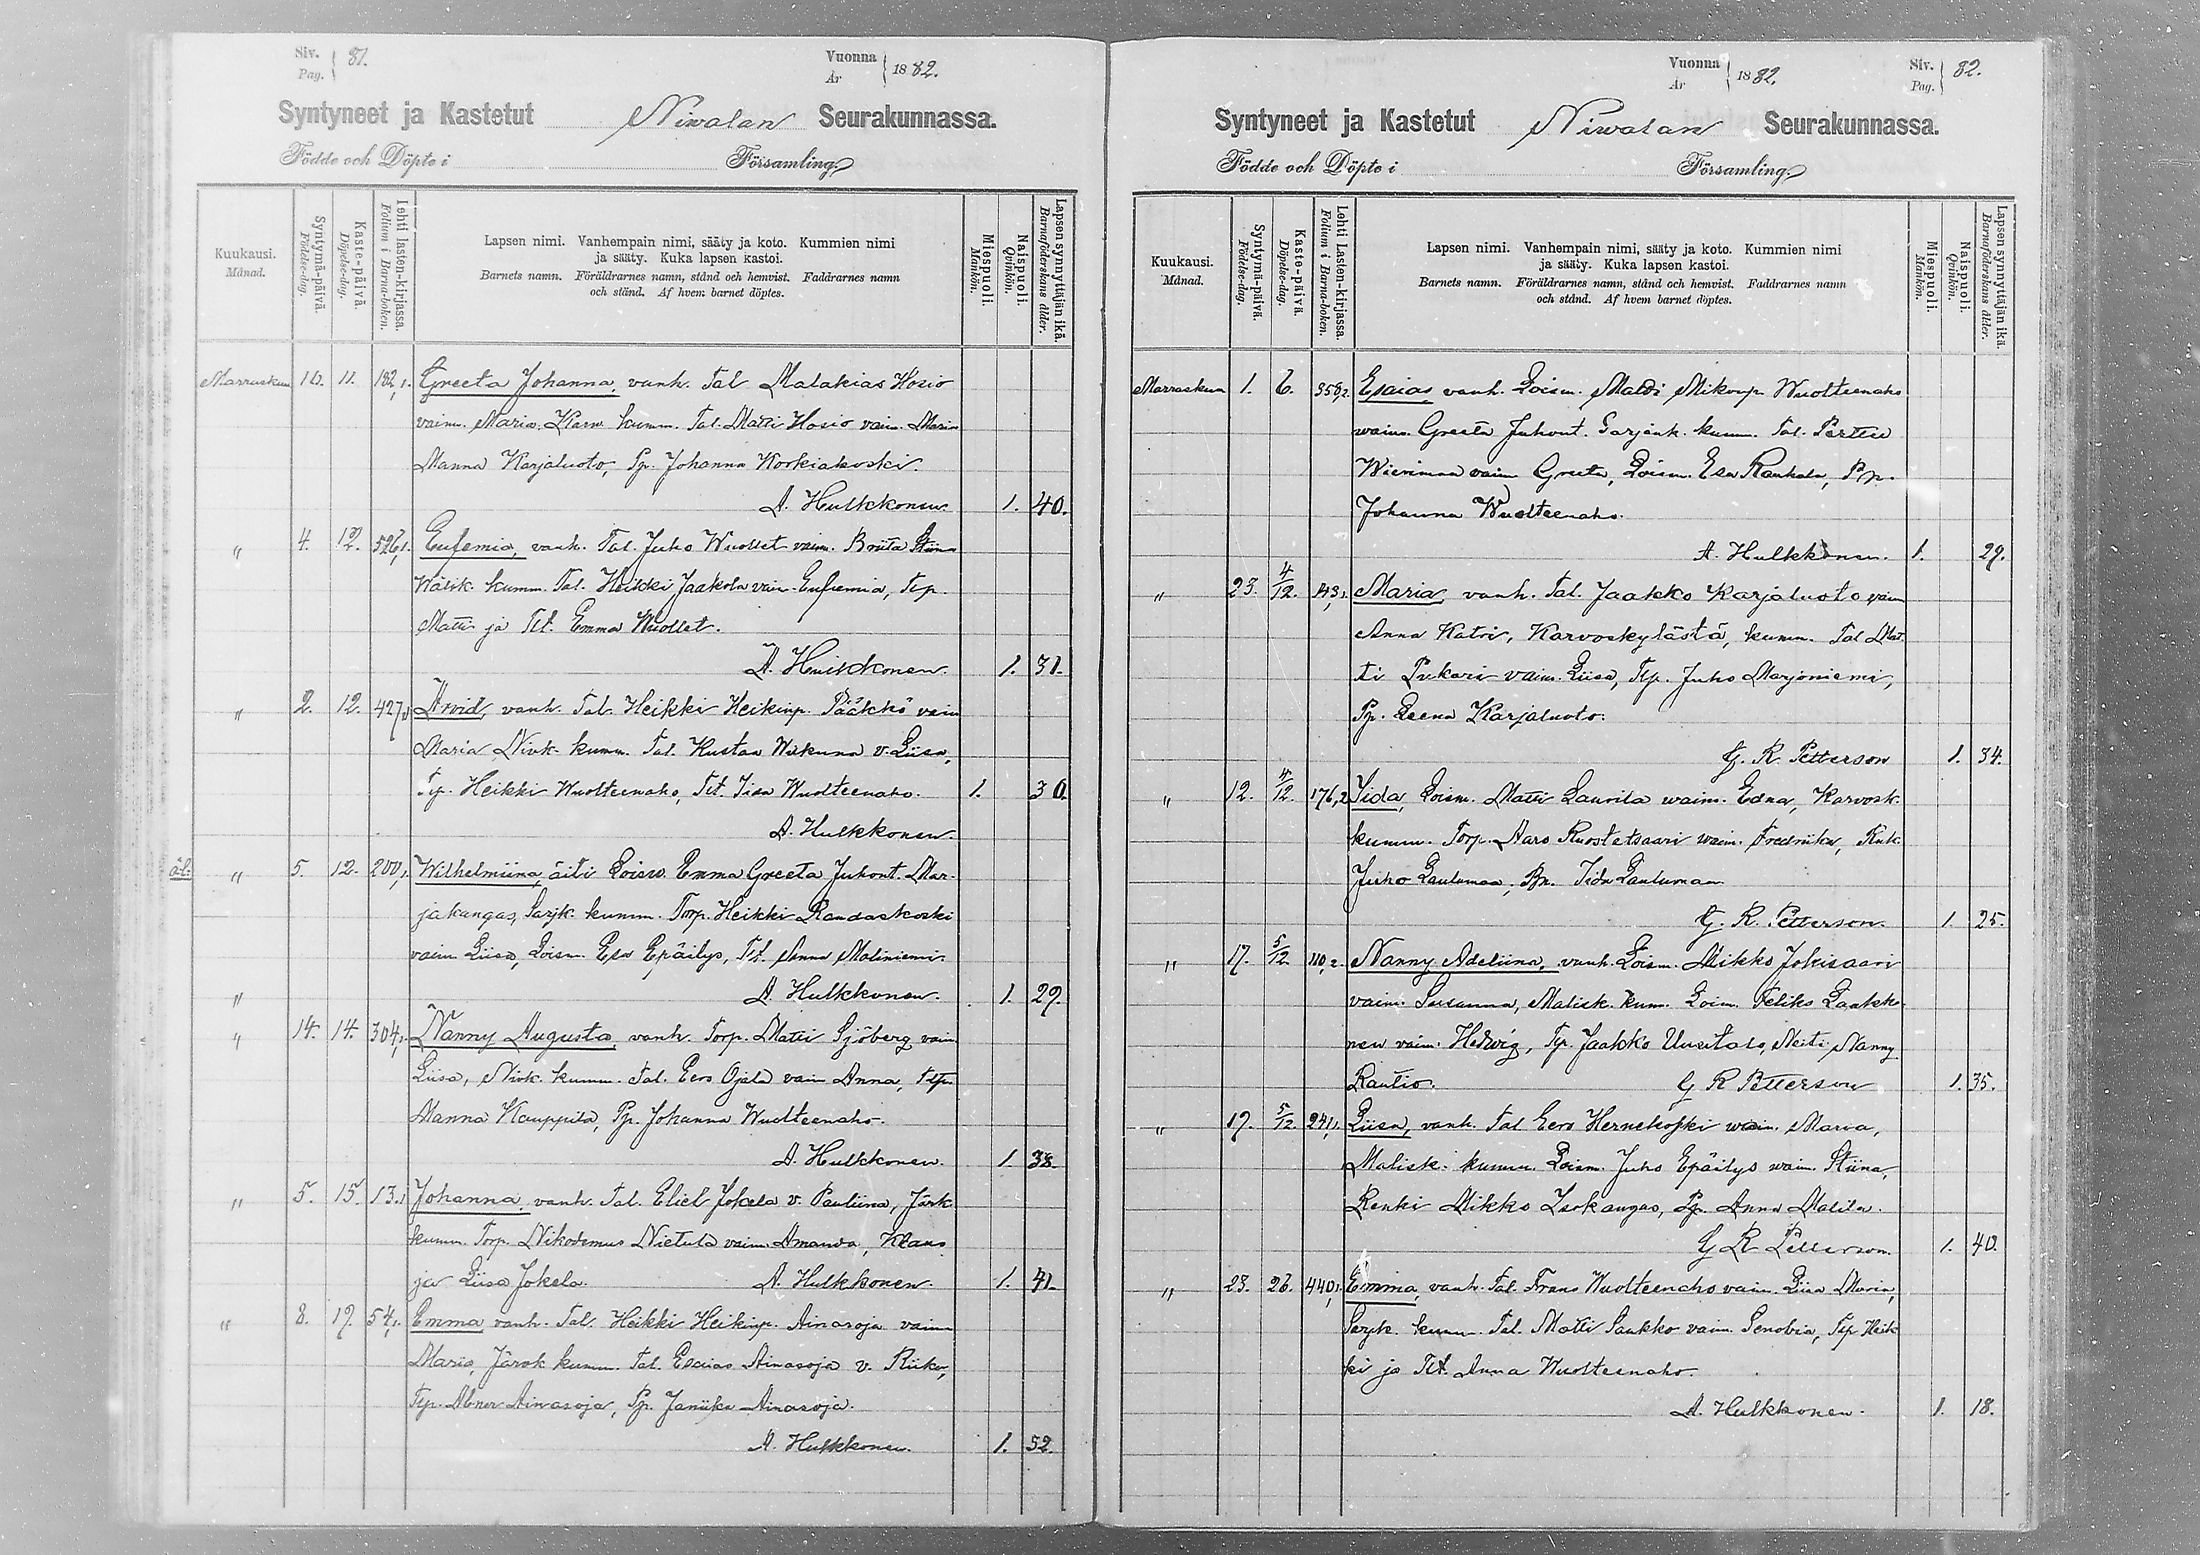 Siv. Pag. 81.
Vuonna År 1882.
Syntyneet ja Kastetut Niwalan Seurakunnassa.
Födde och Döpte i Församling
Kuukausi. Månad.
Syntymä-päivä. Födelse-dag.
Kaste-päivä. Döpelse-dag.
Lehti lasten-kirjassa. Folium i Barna-boken.
Lapsen nimi. Vanhempain nimi, sääty ja koto. Kummien nimi
ja sääty. Kuka lapsen kastoi.
Barnets namn. Föräldrarnes namn, stånd och hemvist. Faddrarnes namn
och stånd. Af hvem barnet döptes.
Miespuoli. Mankön.
Naispuoli. Qvinkön.
Lapsen synnyttäjän ikä. Barnaföderskans ålder.
Marraskuu 10. 11. 182,1. Greeta Johanna, vanh. Tal Malakias Hosio
vaim. Maria, kumm. Tal. Matti Hosio vaim. Maria
Manna Karjaluoto, Pp. Johanna Korkiakoski.
A. Hulkkonen. 1. 40.
" 4. 12. 526,1. Eufemia, vanh. Tal. Juho Wuollet vaim. Briita Stiina
Wälik. kumm. Tal. Heikki Jaakola vaim. Eufemia, Tlp.
Matti ja Tlt. Emma Wuollet.
A. Hulkkonen. 1. 31.
" 2. 12. 427,1 Arvid, vanh. Tal. Heikki Heikinp. Pääkkö vaim
Maria, Nivk. kumm. Tal. Kustaa Wiikuna v. Liisa,
Tlp. Heikki Wuolteenaho, Tlt. Iisa Wuolteenaho. 1. 30.
A. Hulkkonen.
äl. " 5. 12. 200,1. Wilhelmiina, äiti Loisv. Emma Greeta Juhont. Mar-
jakangas, Sarjk. kumm. Torp. Heikki Raudaskoski
vaim Liisa, Loism. Esa Epäilys, Tlt. Anna Maliniemi.
" A. Hulkkonen. 1. 29.
" 14. 14. 304,1. Nanny Augusta, vanh. Torp. Matti Sjöberg vaim
Liisa, Nivk. kumm. Tal. Eero Ojala vaim Anna,
Manna Kauppila, Pp. Johanna Wuolteenaho.
A. Hulkkonen. 1. 38.
" 5. 15. 13.,1 Johanna, vanh. Tal. Eliel Jokela v. Pauliina, Järk.
kumm. Torp. Nikodemus Nietula vaim. Amanda, Klaus
ja Liisa Jokela. A. Hulkkonen. 1. 41.
" 8. 19. 54,1. Emma, vanh. Tal. Heikki Heikinp. Ainasoja vaim
Maria, Järvk kumm. Tal. Esaias Ainasoja v. Riika,
Tlp. Abner Ainasoja, Pp. Janiika Ainasoja.
A. Hulkkonen. 1. 52.
Vuonna År 1882.
Siv. Pag. 82.
Syntyneet ja Kastetut Niwalan Seurakunnassa.
Födde och Döpte i Församling
Kuukausi. Månad.
Syntymä-päivä. Födelse-dag.
Kaste-päivä. Döpelse-dag.
Lehti Lasten-kirjassa. Folium i Barna-boken.
Lapsen nimi. Vanhempain nimi, sääty ja koto. Kummien nimi
ja sääty. Kuka lapsen kastoi.
Barnets namn. Föräldrarnes namn, stånd och hemvist. Faddrarnes namn
och stånd. Af hvem barnet döptes.
Miespuoli. Mankön.
Naispuoli. Qvinkön.
Lapsen synnyttäjän ikä. Barnaföderskans ålder.
Marraskuu 1. 6. 358,2. Esaias, vanh. Loism. Matti Mikonp. Wuolteenaho
waim. Greeta Juhont. Sarjenk. kumm. Tal. Perttu
Wierimaa vaim Greeta, Loism. Esa Raukala, Pp.
Johanna Wuolteenaho.
A. Hulkkonen. 1. 29.
" 23. 4/12. 143,1 Maria, vanh. Tal. Jaakko Karjaluoto vaim
Anna Katri, Karvoskylästä, kumm. Tal Mat-
ti Pukari vaim. Liisa, Tlp. Juho Marjoniemi,
Pp. Leena Karjaluoto.
G. R. Petterson 1. 34.
" 12. 4/12. 176,2 Iida, Loism. Matti Laurila waim. Edna, Karvosk.
kumm. Torp. Aaro Ruostetsaari waim. Fredriika, Rnk.
Juho Lautamaa, Pn. Iida Lautamaa.
G. R. Petterson. 1. 25.
" 17. 5/12 110,2. Nanny Adeliina, vanh. Loism. Mikko Jokisaari
vaim. Susanna, Malisk. kum. Loim. Feliks Laakko-
nen vaim. Hedwig, Tlp. Jaakko Uusitalo, Neiti Nanny
Rautio. G R Petterson 1. 35.
" 17. 5/12 241,1. Liisa, vanh. Tal Eero Hernekoski waim. Maria,
Malisk. kumm. Loism. Juho Epäilys waim. Stiina,
Renki Mikko Isokangas, Pp. Anna Malila.
G R Petterson. 1. 40.
" 23. 26. 440,1. Emma, vanh. Tal. Frans Wuolteenaho vaim. Liisa Maria,
Sarjk. kumm. Tal. Matti Saukko vaim. Senobia, Tlp Heik-
ki ja Tlt. Anna Wuolteenaho.
A. Hulkkonen. 1. 18.